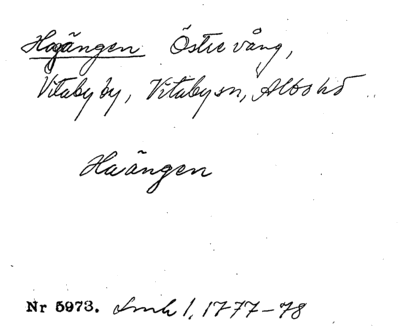 Hagängen Östre vång,
Vitaby by, Vitaby sn, Albo hd
Haängen
Nr 5973. Lmk 1, 1777-78